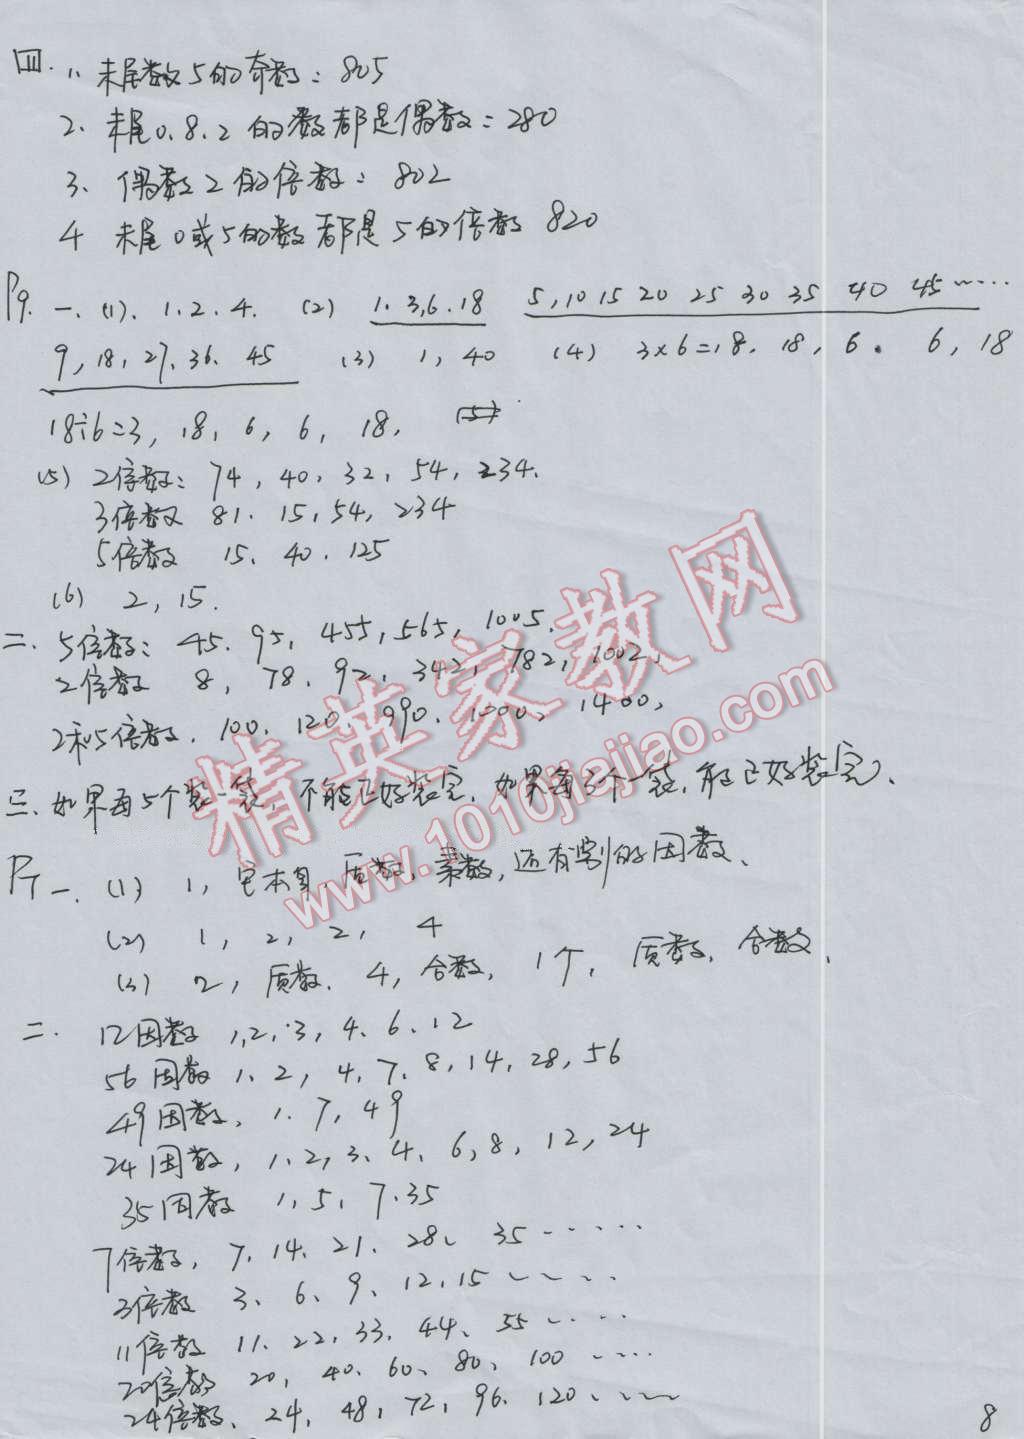 四. 1、末尾数5的奇数：805
2、末尾0.8.2的数都是偶数：280
3、偶数2的倍数：802
4 末尾0或5的数都是5的倍数 820
P9. 一.(1). 1.2.4. (2) 1.3,6.18 5,10 15 20 25 30 35 40 45 ……
9,18,27,36.45 (3) 1,40 (4) 3×6=18, 18, 6. 6, 18
18÷6=3, 18, 6, 6, 18.
(5) 2倍数：74, 40, 32, 54, 234.
3倍数 81. 15, 54, 234
5倍数 15. 40. 125
(6) 2, 15.
二. 5倍数：45. 95, 455, 565, 1005.
2倍数 8, 78. 92. 342, 782, 1002.
2和5倍数. 100. 120. 990. 1000, 1400,
三. 如果每5个装一袋, 不能正好装完. 如果每3个一袋, 能正好装完.
一.(1) 1, 它本身. 质数, 素数, 还有别的因数.
(2) 1, 2, 2, 4
(3) 2, 质数. 4, 合数, 1个, 质数, 合数.
二. 12因数 1,2,3, 4. 6. 12
56因数 1. 2, 4, 7. 8, 14, 28, 56
49因数, 1. 7, 49
24因数, 1. 2, 3. 4. 6, 8, 12, 24
35因数 1, 5, 7. 35
7倍数, 7. 14. 21. 28、 35 ……
3倍数 3、 6、 9、 12, 15 ……
11倍数 11. 22, 33. 44、 55 ……
20倍数 20, 40. 60、 80、 100 ……
24倍数、 24, 48, 72, 96. 120 ……
8
精英家教网
www.1010jiajiao.com